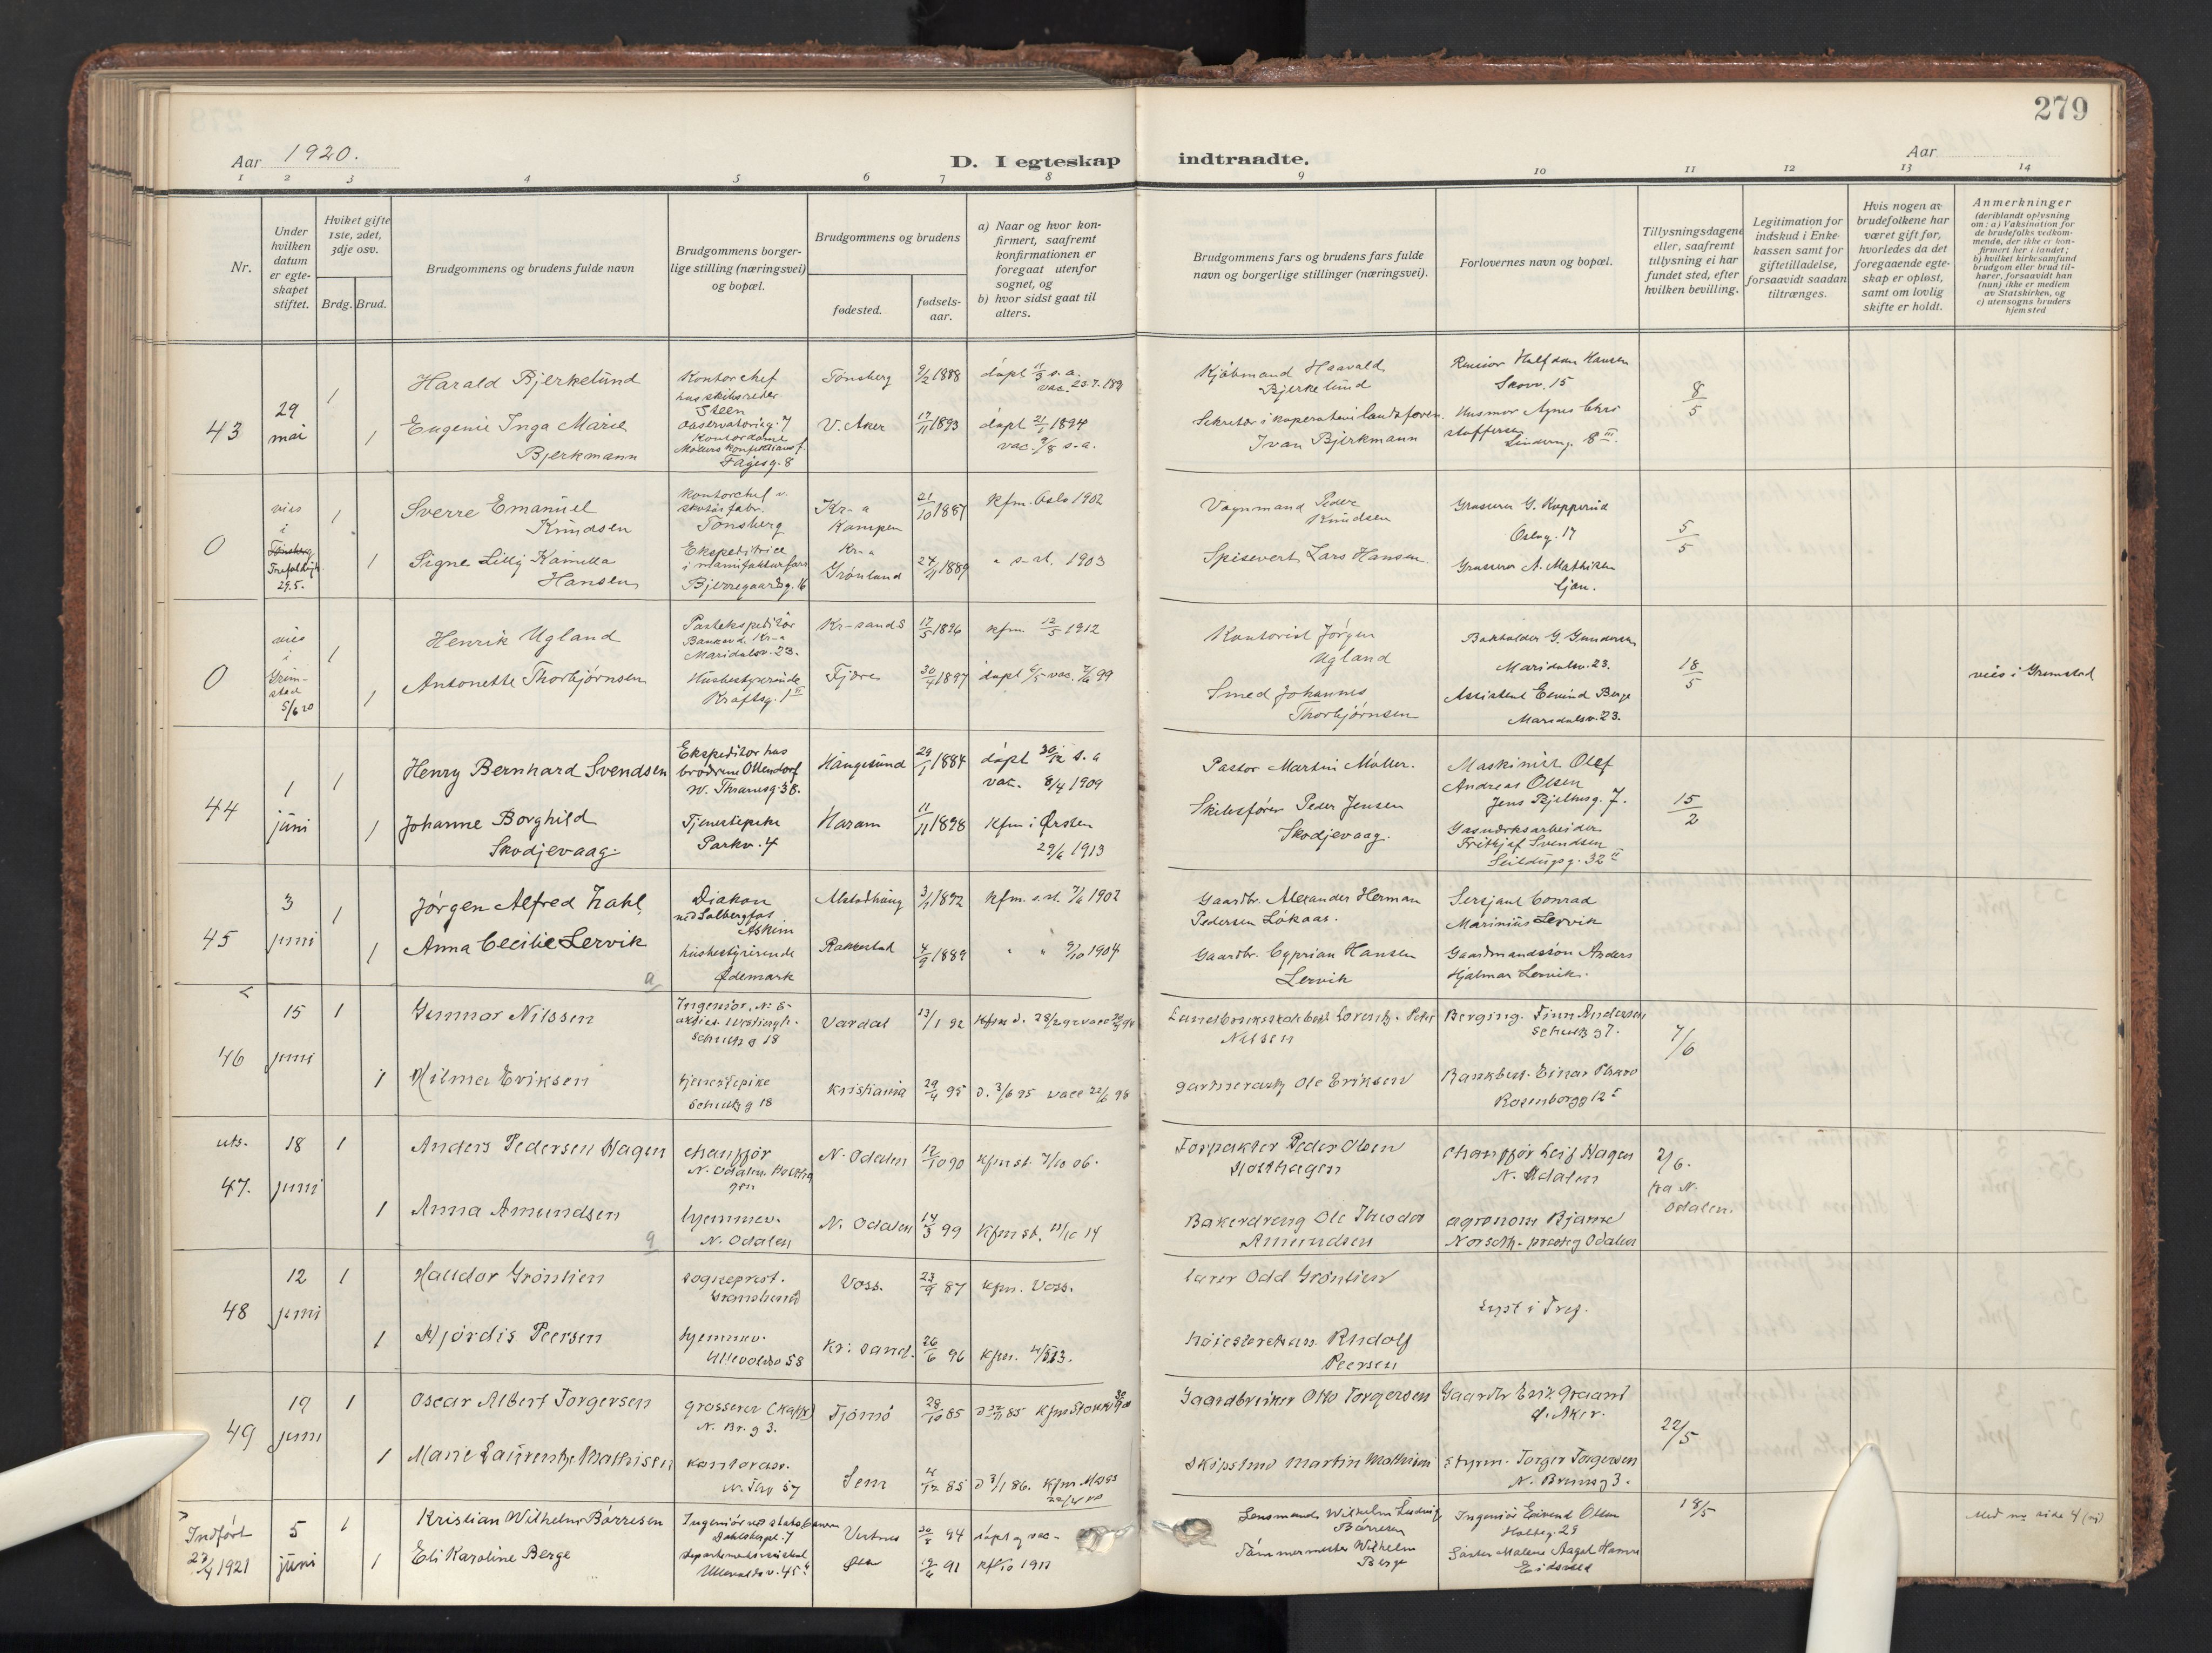 279
Aar 1920.
D. I egteskap indtraadte.
Aar
1 2 3 4 5 6 7 8 9 10 11 12 13 14
Nr.
Under hvilken datum er egte-skapet stiftet.
Hviket gifte 1ste, 2det, 3dje osv.
Brdg. Brud.
Brudgommens og brudens fulde navn
Brudgommens borger-lige stilling (næringsvei) og bopæl.
Brudgommens og brudens
fødested.
fødsels-aar.
a) Naar og hvor kon-firmert, saafremt konfirmationen er foregaat utenfor sognet, og
b) hvor sidst gaat til alters.
Brudgommens fars og brudens fars fulde navn og borgerlige stillinger (næringsvei).
Forlovernes navn og bopæl.
Tillysningsdagene eller, saafremt tillysning ei har fundet sted, efter hvilken bevilling.
Legitimation for indskud i Enke-kassen samt for giftetilladelse, forsaavidt saadan tiltrænges.
Hvis nogen av brudefolkene har været gift før, hvorledes da det foregaaende egte-skap er opløst, samt om lovlig skifte er holdt.
Anmerkninger
(deriblandt oplysning om: a) Vaksination for de brudefolks vedkom-mende, der ikke er kon-firmert her i landet; b) hvilket kirkesamfund brudgom eller brud til-hører, forsaavidt han (hun) ikke er medlem av Statskirken, og c) utensogns bruders hjemsted
43
29 mai
1
Harald Bjerkelund
Kontorchef
hos skibsreder
Steen
Observatorieg. 7
Tønsberg
9/2 1888
døpt
s. a.
vac.
Kjøbmand Haavald
Bjerkelund
Revisor Halfdan Hansen
Skovv. 15
8/5
1
Eugenie Inga Marie
Bjerkmann
Kontordame
Fagesg. 8
V. Aker
17/11 1893
døpt 21/1 1894
vac. 9/8 s. a.
Ivan Bjerkmann
Husmor Agnes Chri
stoffersen
8 III.
0
vies
i
Tønsberg
29.5.
1
Sverre Emanuel
Knudsen
Kontorchef v.
Tønsberg
Kr-a
Kampen
21/10 1887
kfm. Oslo 1902
Vognmand Peder
Knudsen
Grosserer G. Kopperud
Oslog. 17
5/5
1
Signe Lilly Kamilla
Hansen
Ekspeditrice
i manufakturforr
Bjerregaardsg. 16
Kr-a
Grønland
24/11 1889
" s-st. 1903
Spisevert Lars Hansen
Grosserer A. Mathisen
Ljan.
0
vies
i
Grim-
stad
5/6 20
1
Henrik Ugland
Postekspeditør
Maridalsv. 23.
Kr-sand S
17/5 1896
kfm. 12/5 1912
Kontorist Jørgen
Ugland
Bokholder G. Gundersen
Maridalsv. 23.
18/5
vies i Grimstad
1
Antonette Thorbjørnsen
Husbestyrerinde
Kraftsg. 1 II
Fjære
30/4 1897
døpt 6/5 vac. 7/6 99
Smed Johannes
Thorbjørnsen
Assistent Eivind Berge
Maridalsv. 23.
44
1 juni
1
Henry Bernhard Svendsen
Ekspeditør hos
brødrene Ottendorf
W. Thranesg. 38.
Haugesund
29/1 1884
døpt 30/12 s. a
vac. 8/4 1909
Pastor Martin Møller.
Maskinist Olef
Andreas Olsen
Jens Bjelkesg. 7.
15/2
1
Johanne Borghild
Skodjevaag.
Tjenestepike
Parkv. 4
Haram
11/11 1898
Kfm i Ørsten
29/6 1913
Skibsfører Peder Jensen
Skodjevaag.
Gasverksarbeider
Fritjof Svendsen
Seildugsg. 32 II
45
3 juni
1
Jørgen Alfred Zahl
Diakon
ved Solbergfos
Askim
Alstadhaug
3/1 1892
kfm. s. st. 7/6 1902
Gaardbr. Alexander Herman
Pedersen Løkaas.
Sersjant Conrad
Marinius Lervik
1
Anna Cecilie Lervik
husbestyrerinde
Ødemark
Rakkestad
4/9 1889
" " 9/10 1904
Gaardbr. Cyprian Hansen
Lervik
Gaardmandssøn Anders
Hjalmar Lervik.
a
46
15 juni
1
Gunnar Nilssen
Schultz g 18
Vardal
13/1 92
Nilsen
Berging. Finn Andersen
Schultz g 7.
7/6
1
Hilma Eriksen
tjenestepike
Schultz g 18
Kristiania
29/4 95
d. 3/6 95 vacc 22/6 98
Ole Eriksen
Rosenborgg 12 I
uts.
47.
18 juni
1
Anders Pedersen Hagen
chauffør
N. Odalen
N. Odalen
12/10 90
kfm st. 7/10 06.
Forpakter Peder Olsen
Holthagen
chauffør Leif Hagen
N. Odalen
2/6.
fra N.
Odalen.
1
Anna Amundsen
hjemmev.
N. Odalen
N. Odalen
14/3 99
Kfm st. 11/10 14
Bakerdreng Ole Theodor
Amundsen
agronom Bjarne
Odalen
a
48
12 juni
1
Halldor Grønlien
sogneprest.
Voss.
23/9 87
kfm. Voss.
lærer Odd Grønlien
Lyst i Tref.
1
Hjørdis Peersen
hjemmev.
Ullevoldsv 58
Kr: sand.
26/6 96
kfm. 4/5 13.
høiesteretsas. Rudolf
Peersen
49
19 juni
1
Oscar Albert Torgersen
grosserer
N. Br. g 3.
Tjømø
28/10 85
Gaardbruker Otto Torgersen
Gaardbr Erik Graand
Ø. Aker.
22/5
1
Marie Laurentze Mathisen
kontorass.
57
Sem
4/12 85
d 3/1 86. Kfm
Martin Mathisen
styrm. Torger Torgersen
N. Brunsg 3.
Indført
27/4 1921
5 juni
1
Kristian Wilhelm Børresen
Ingeniør ved statsbanen
94
døpt og vac -
Lensmand Wilhelm Ludvig
Børresen
Ingeniør Eivind Olsen
Holteg. 29
18/5
Med no side 4 (nj)
1
Eli Karoline Berge
Ullevoldsv. 45
91
Tømmermester Wilhelm
Berge
Eidsvold